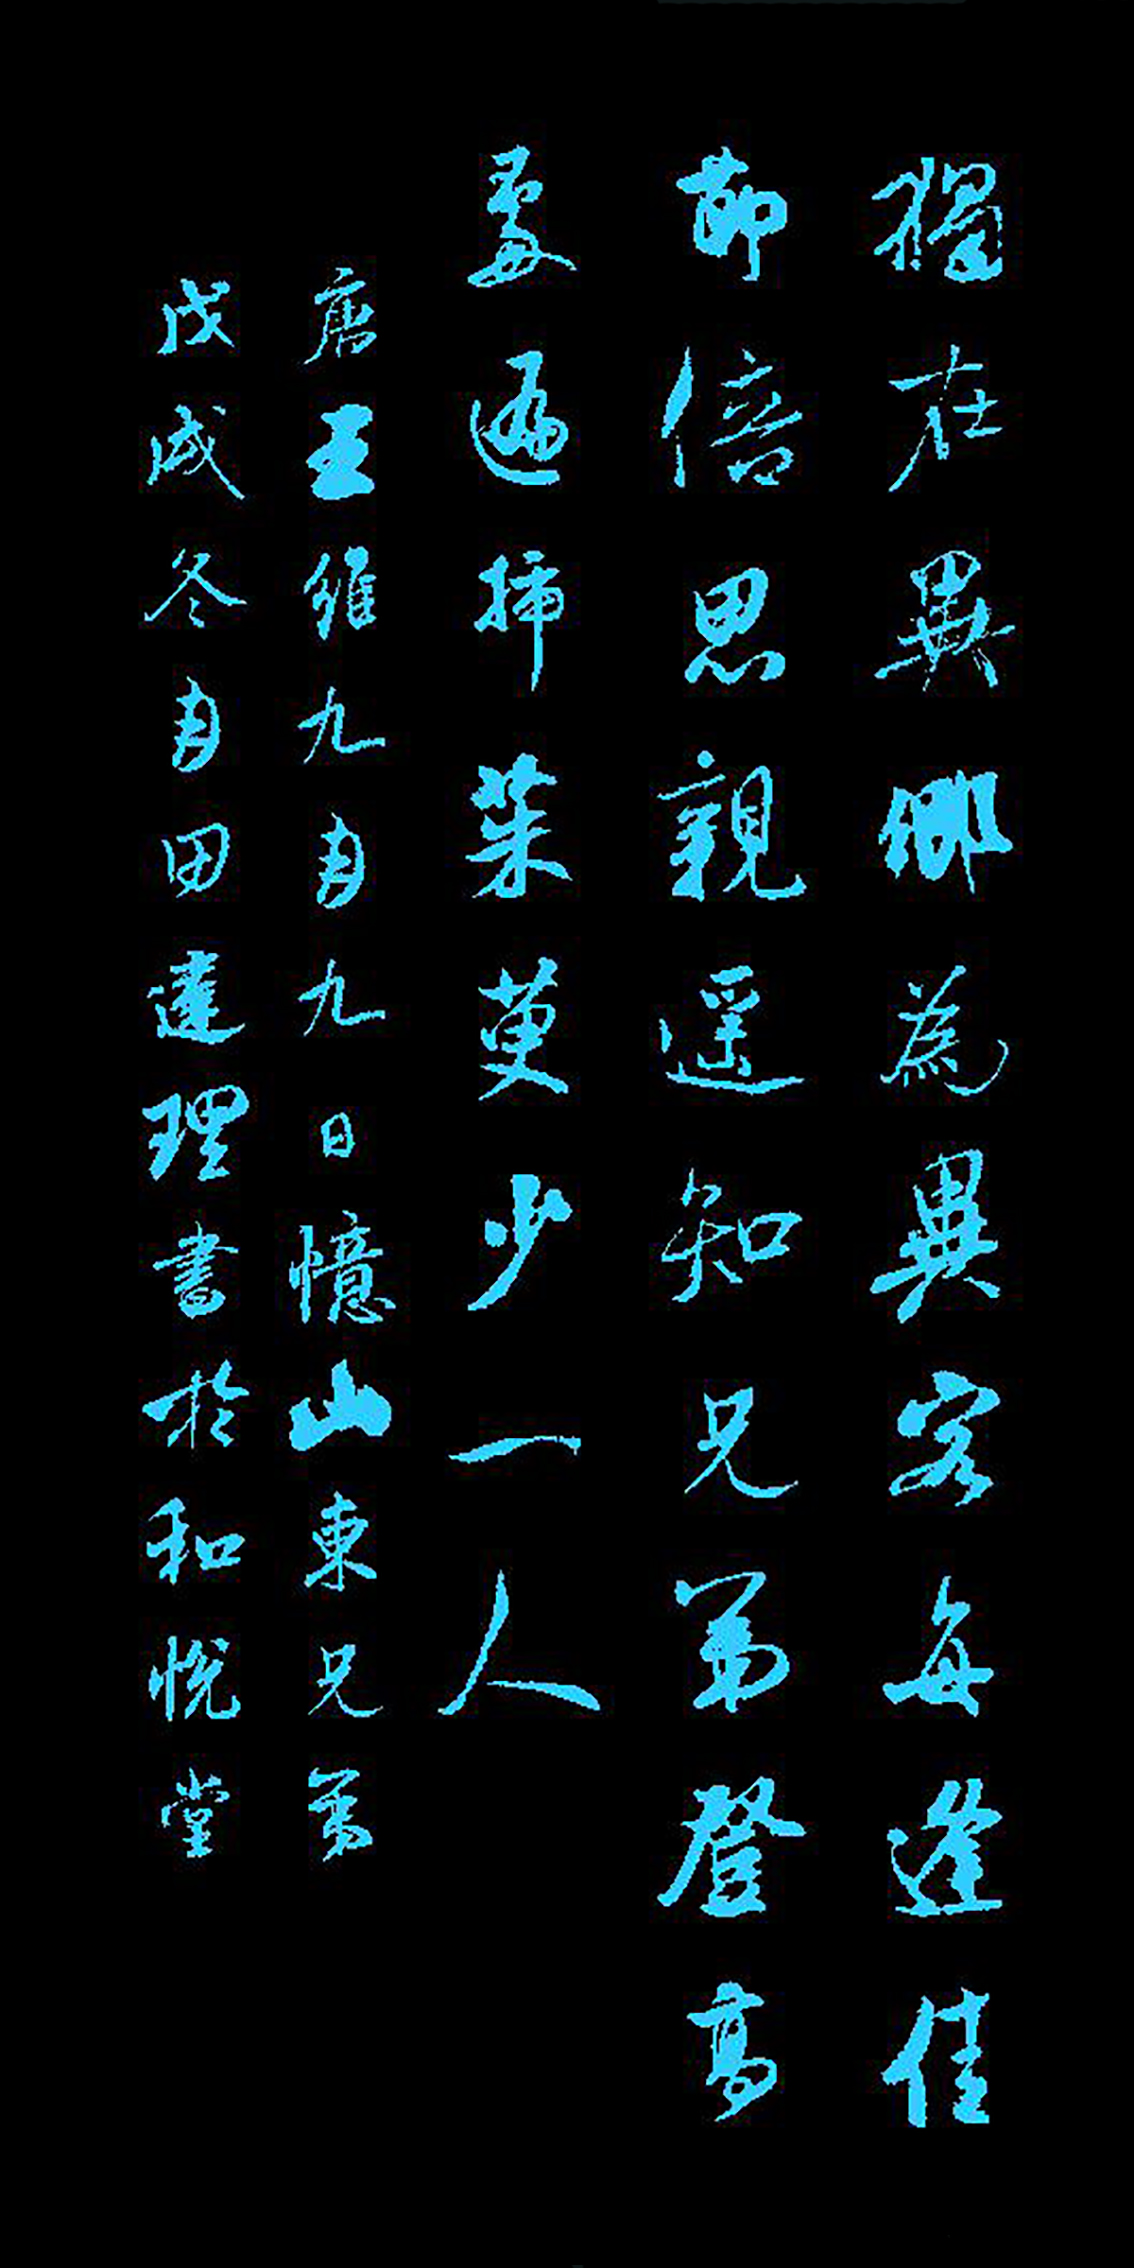 獨在異鄉為異客每逢佳
節倍思親遥知兄弟登高
處遍插茱萸少一人
唐王維九月九日憶山東兄弟
戊戌冬月田達理書於和悦堂